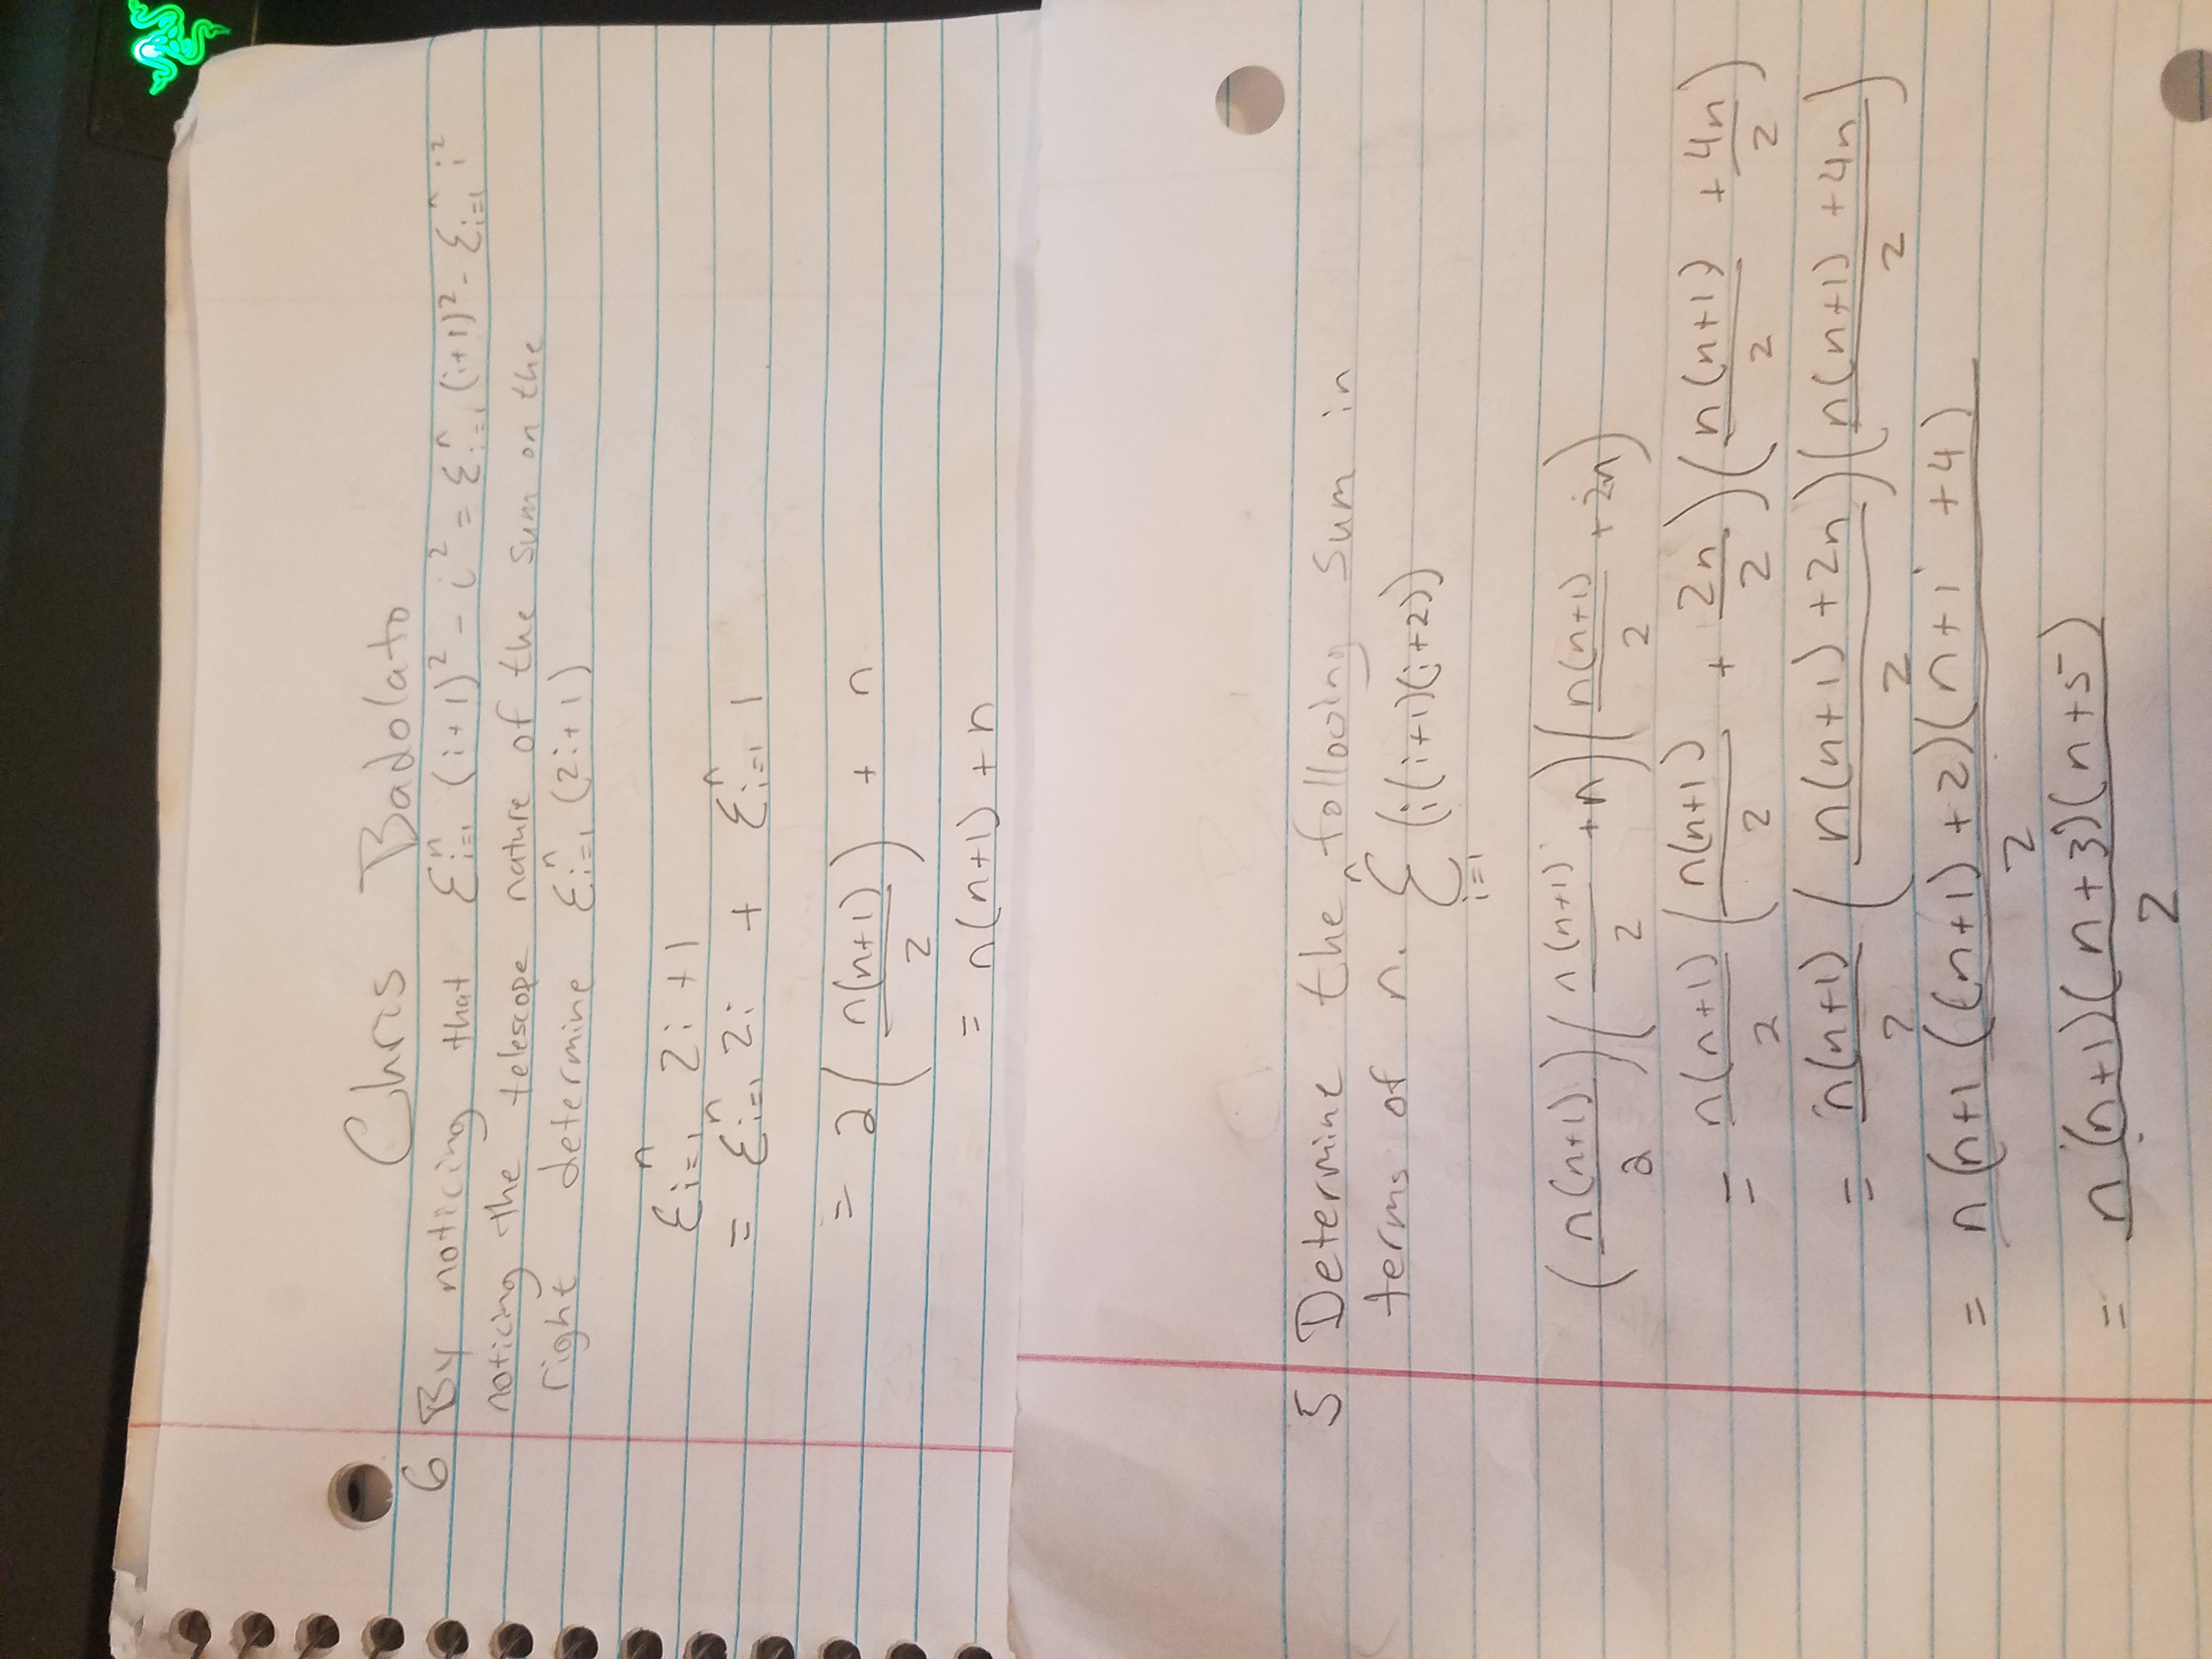 Chris Badolato
6 By noticing that Σⁿᵢ₌₁ (i+1)² - i² = Σⁿᵢ₌₁ (i+1)² - Σⁿᵢ₌₁ i²
noticing the telescope nature of the sum on the
right determine Σⁿᵢ₌₁ (2i+1)
Σⁿᵢ₌₁ 2i + 1
= Σⁿᵢ₌₁ 2i + Σⁿᵢ₌₁ 1
= 2(n(n+1)/2) + n
= n(n+1) + n
5 Determine the following sum in
terms of n. Σⁿᵢ₌₁ (i(i+1)(i+2))
(n(n+1)/2)(n(n+1)/2 + n)(n(n+1)/2 + 2n)
= n(n+1)/2 (n(n+1)/2 + 2n/2)(n(n+1)/2 + 4n/2)
= n(n+1)/2 (n(n+1) + 2n/2)(n(n+1) + 4n/2)
= n(n+1((n+1) + 2)(n+1 + 4)/2
= n(n+1)(n+3)(n+5)/2